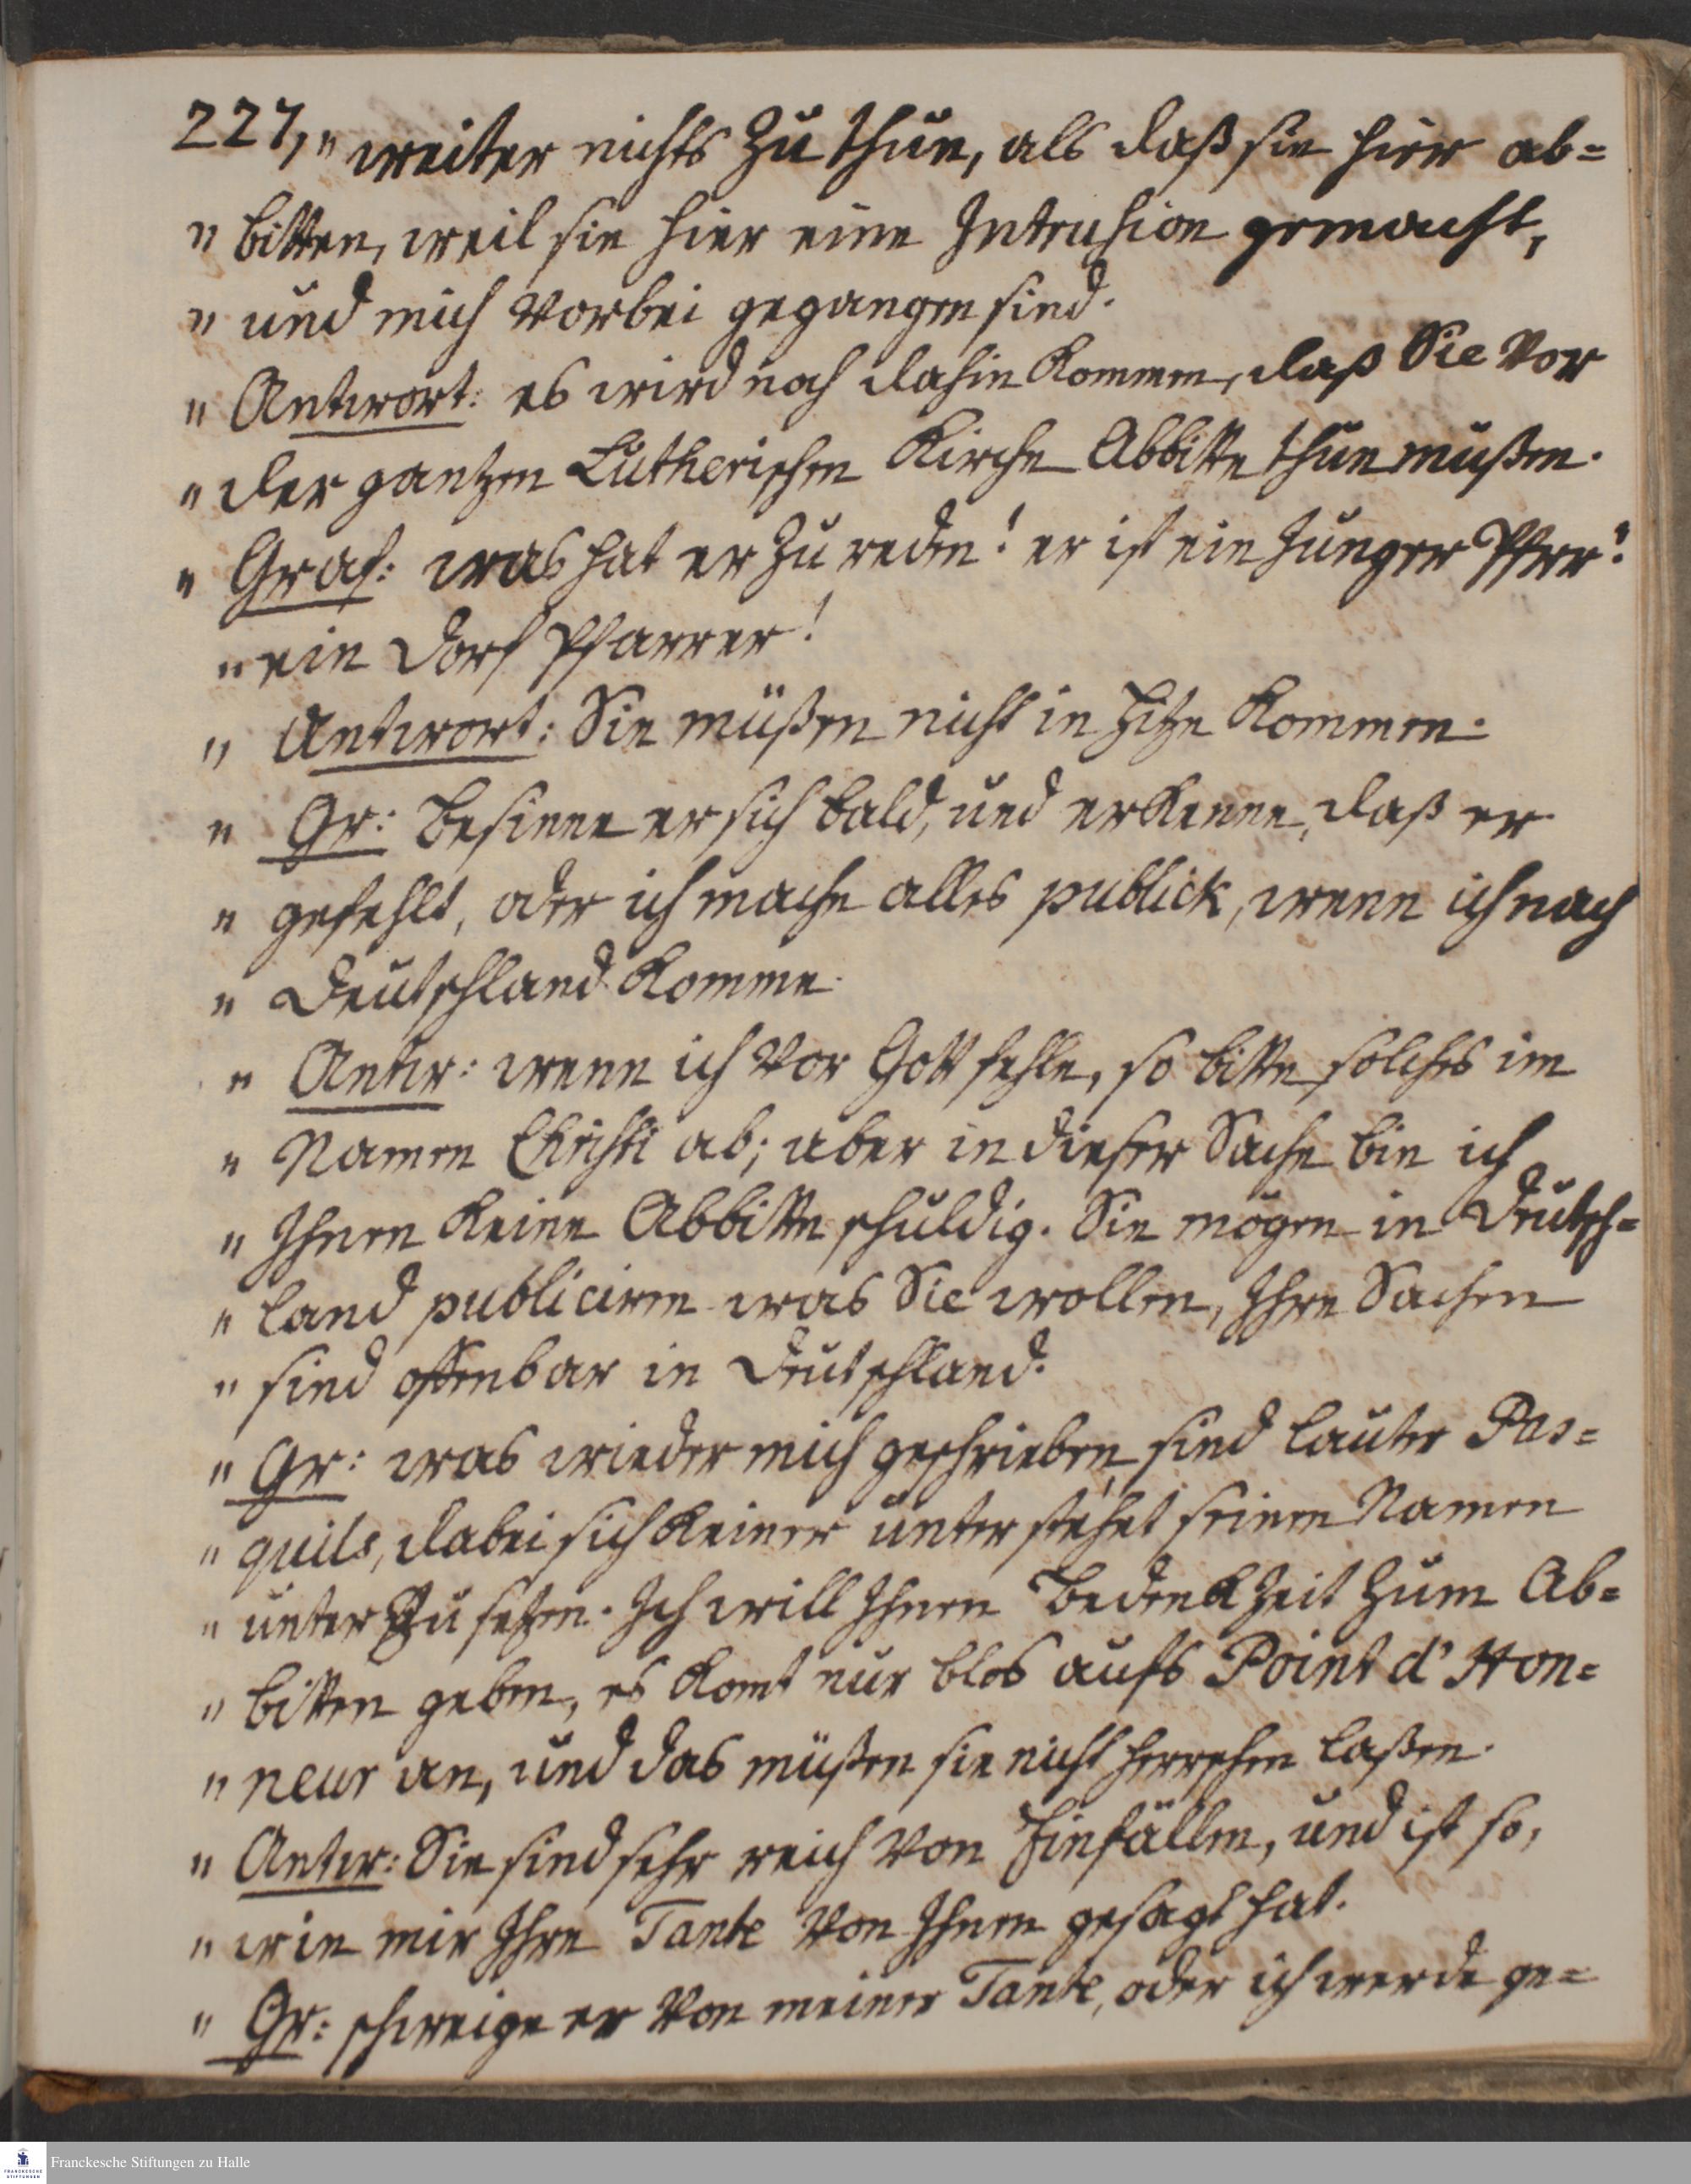 227, " weiter nichts zu thun, als daß sie hier ab=
" bitten, weil sie hier eine Intrusion gemacht,
" und mich vorbei gegangen sind.
" Antwort: es wird noch dahin kommen, daß Sie vor
" der gantzen Lutherischen Kirche Abbitte thun müßen.
" Graf: was hat er zu reden! er ist ein Junger Pfrr!
" ein Dorf Pfarrer!
" Antwort: Sie müßen nicht in Hitze kommen.
" Gr: besinne er sich bald, und erkenne, daß er
" gefehlt, oder ich mache alles publick, wenn ich nach
" Deutschland komme.
" Antw: wenn ich vor Gott fehle, so bitte solches im
" Namen Christi ab; aber in dieser Sache bin ich
" Ihnen keine Abbitte schuldig. Sie mögen in Deutsch=
" land publiciren was Sie wollen, Ihre Sachen
" sind offenbar in Deutschland.
" Gr: was wieder mich geschrieben, sind lauter Pas=
" quils, dabei sich keiner unterstehet seinen Namen
" unter zu setzen. Ich will Ihnen Bedenkzeit zum Ab=
" bitten geben, es komt nur blos aufs Point d'Hon=
" neur an, und das müßen sie nicht herrschen laßen.
" Antw: Sie sind sehr reich von Einfällen, und ist so,
" wie mir Ihre Tante von Ihnen gesagt hat.
" Gr: schweige er von meiner Tante, oder ich werde ge=
Franckesche Stiftungen zu Halle
FRANCKESCHE STIFTUNGEN